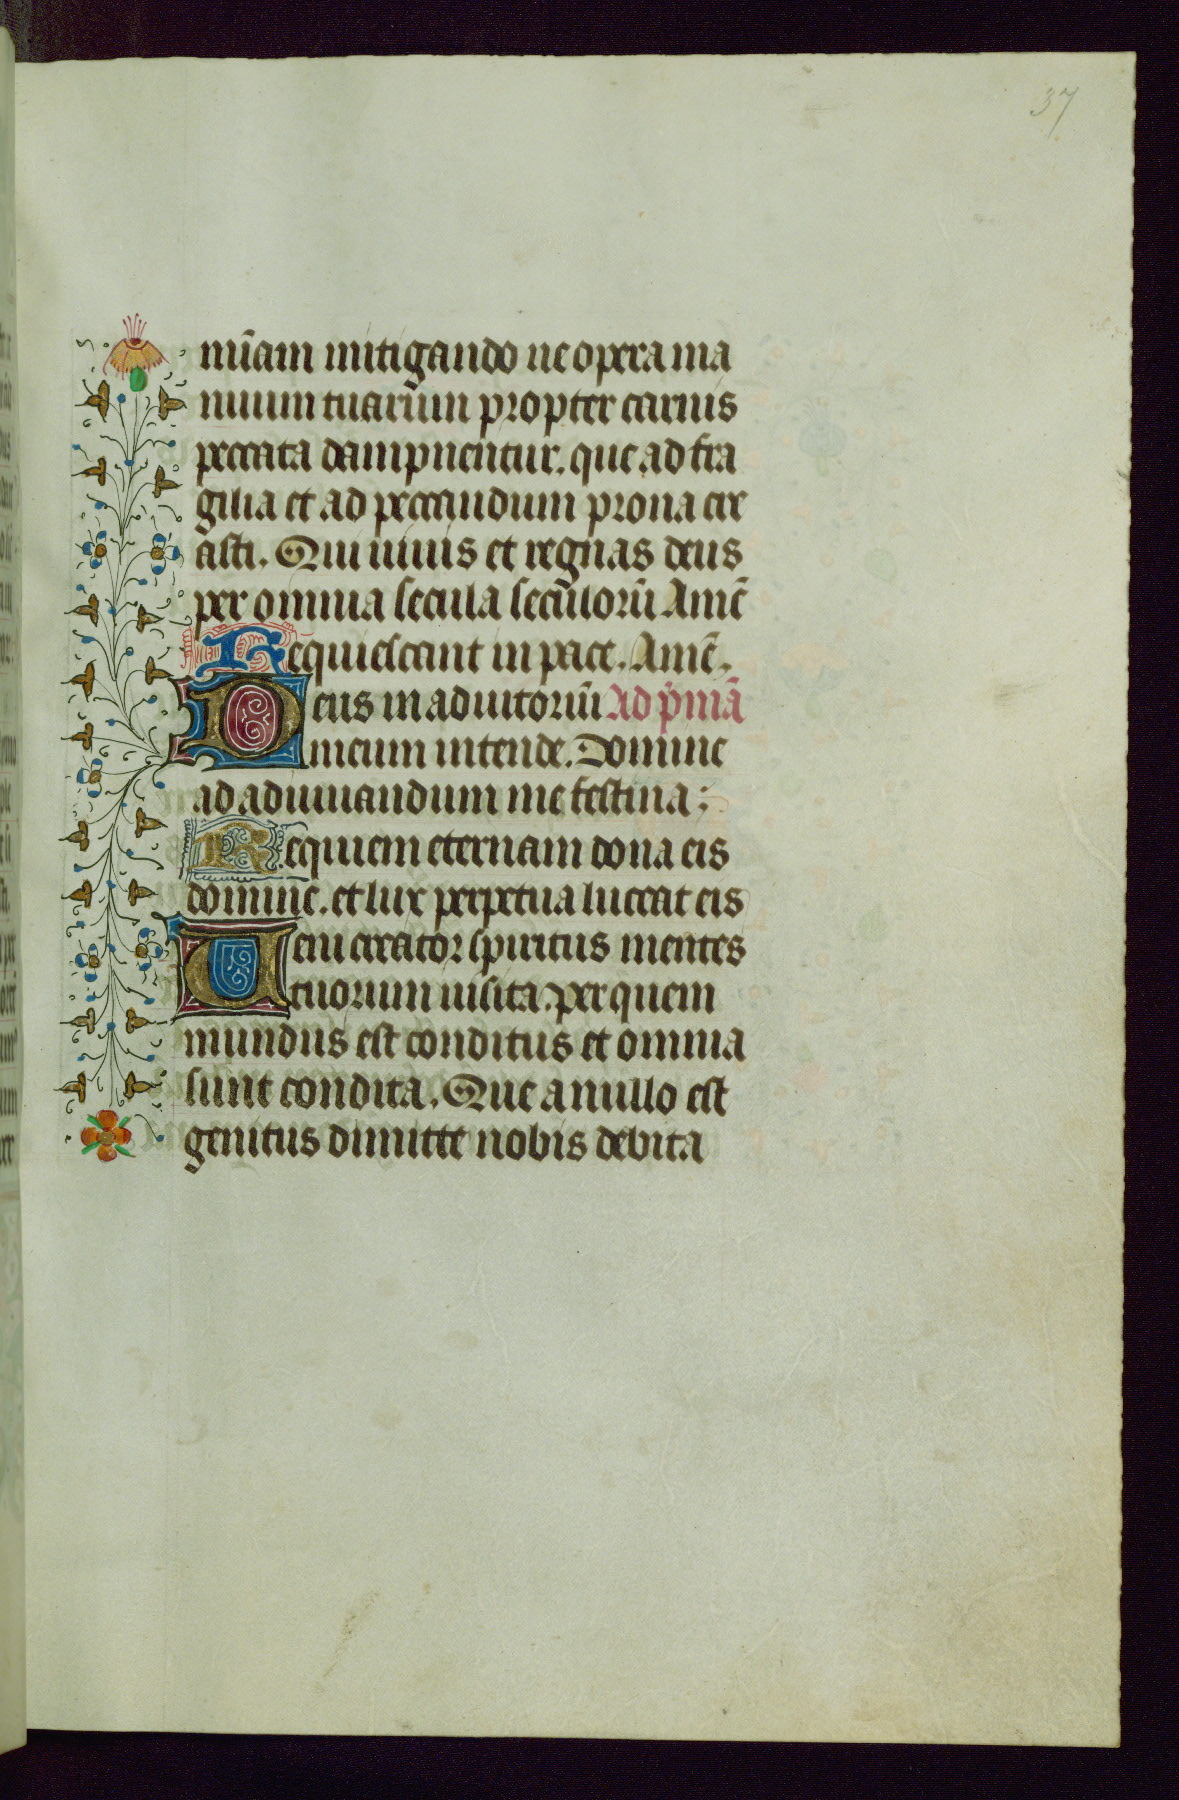 37
mīam mitigando ne opera ma
nuum tuarum propter carnis
peccata dampnentur. que ad fra
gilia et ad peccandum prona cre
asti. Qui uiuis et regnas deus
per omnia secula seculorū Amē
Requiescant in pace. Amē.
Deus in adiutoriū Ad pͥmā
meum intende. Domine
ad adiuuandum me festina;
Requiem eternam dona eis
domine. et lux perpetua luceat eis
Ueni creator spiritus mentes
tuorum uisita. per quem
mundus est conditus et omnia
sunt condita. Que a nullo est
genitus dimitte nobis debita